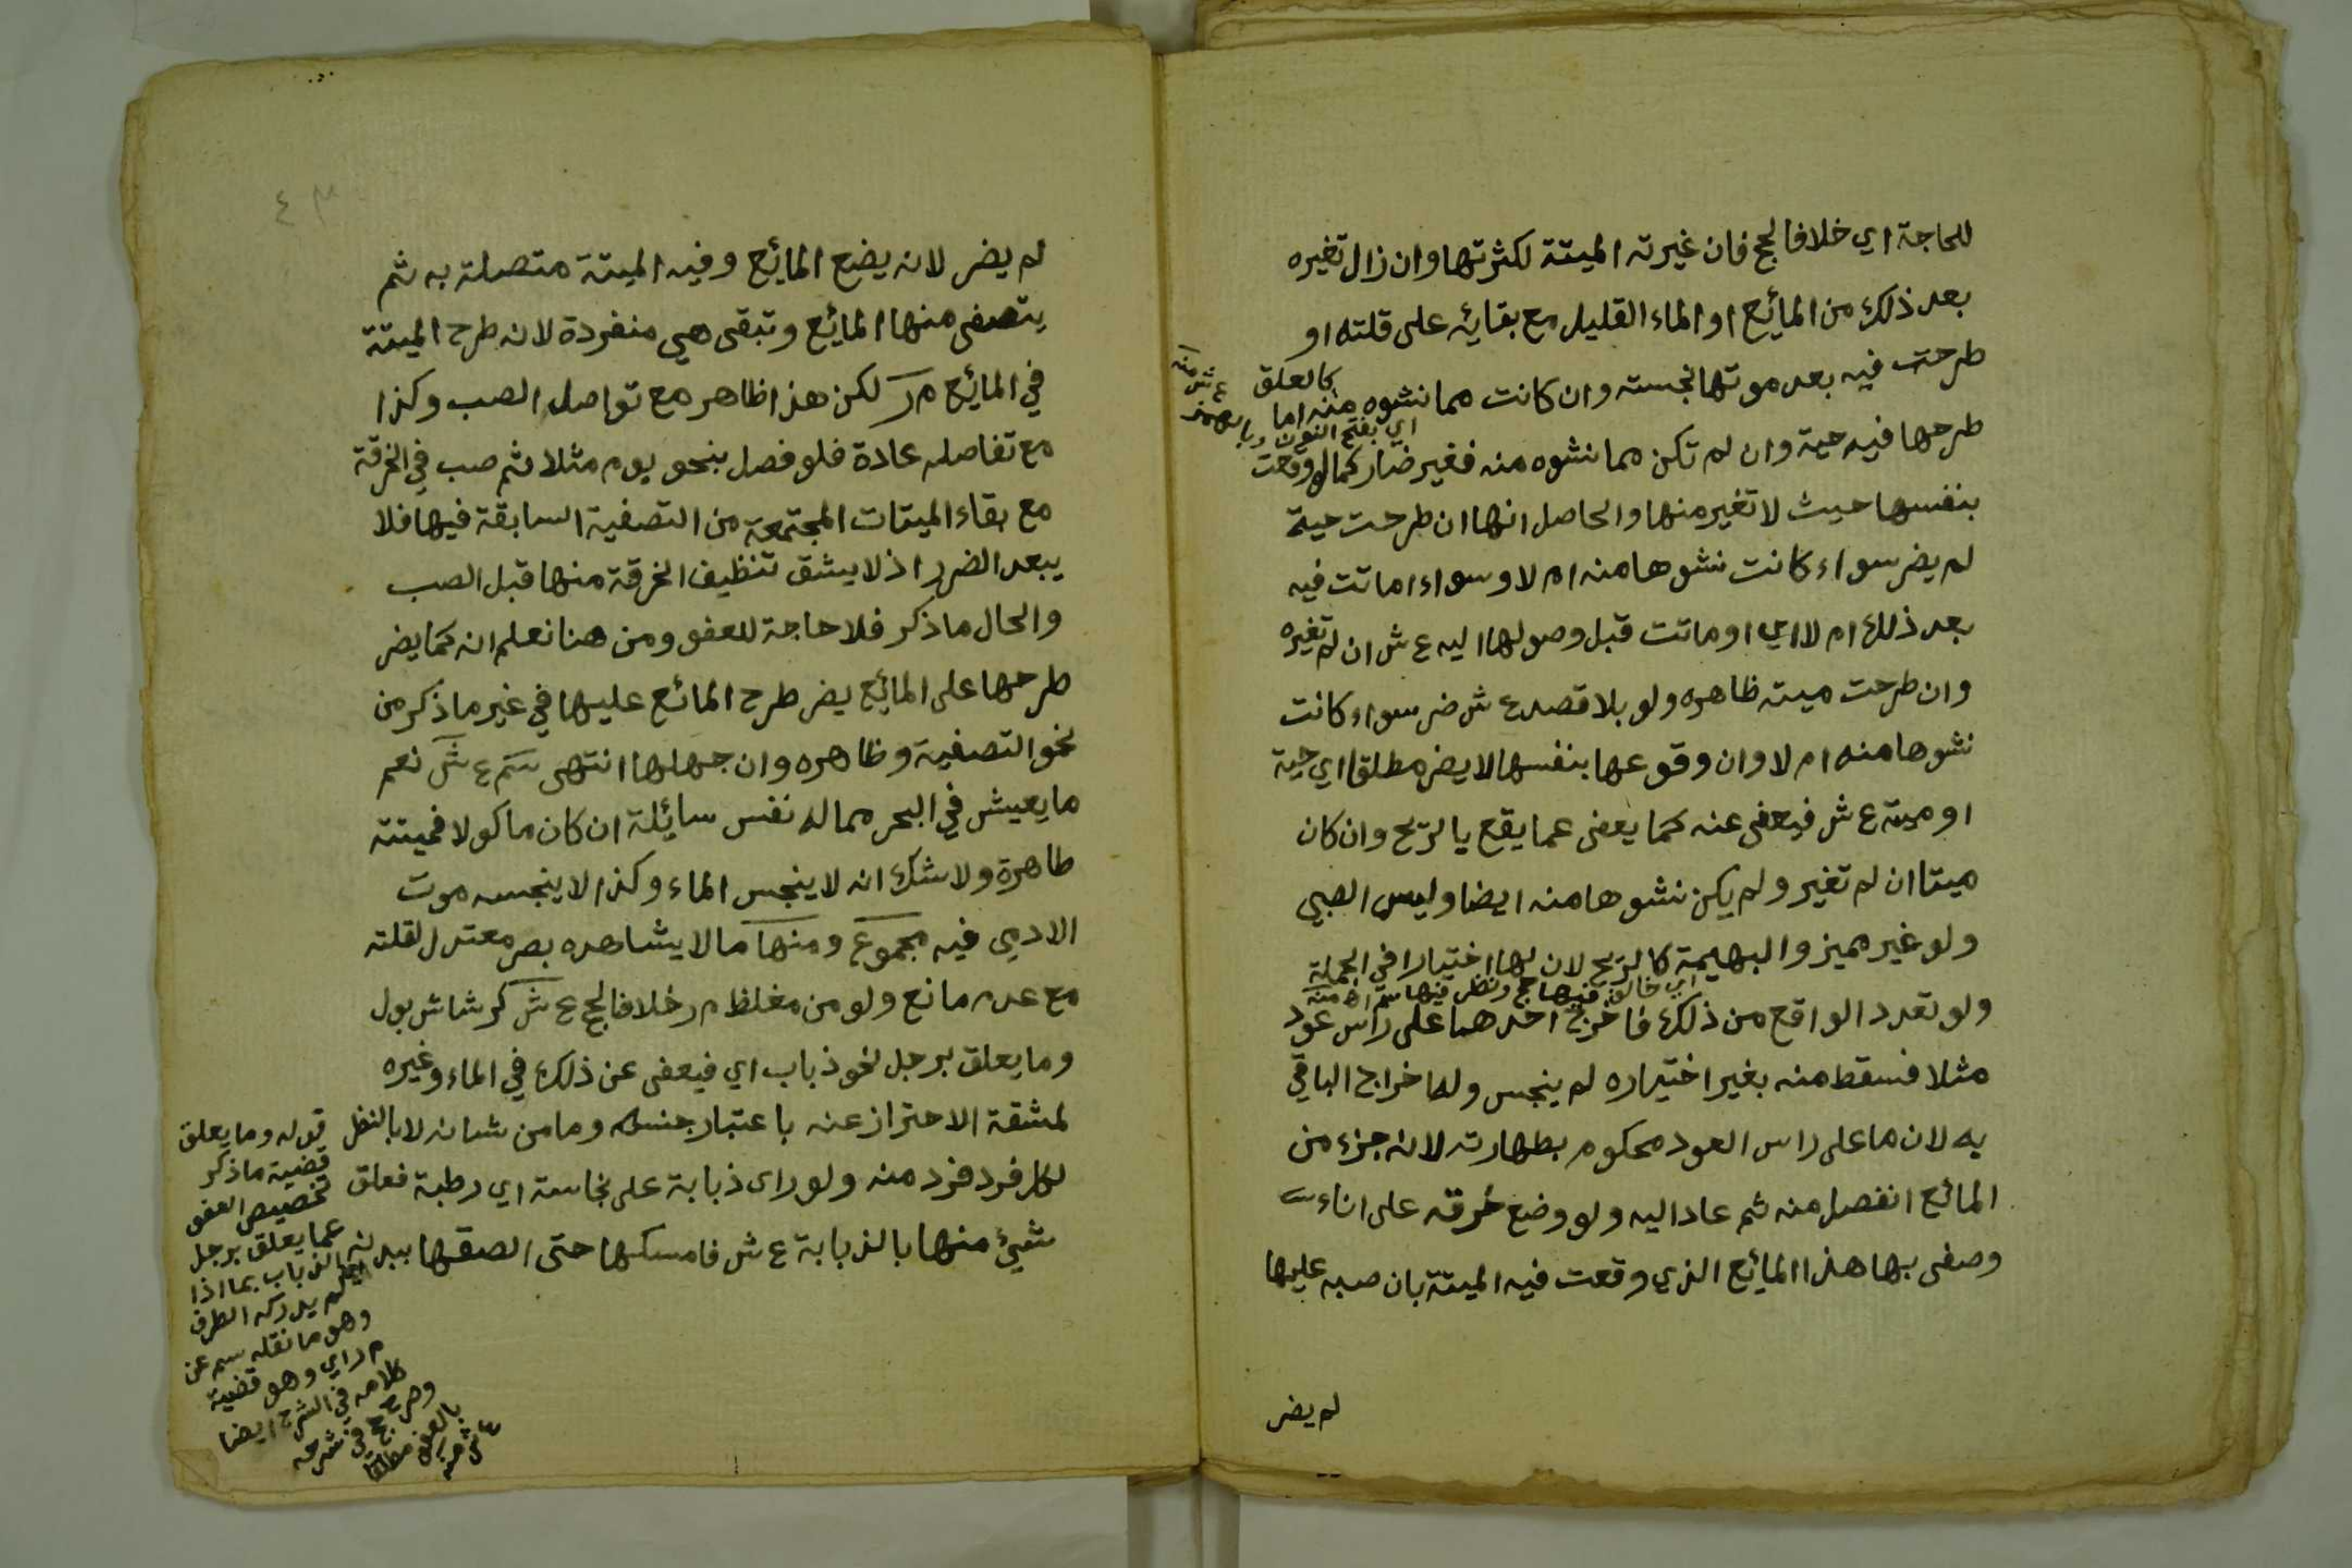 للحاجة اي خلافا لحج فان غيرته الميتة لكثرتها وان زال تغيره
بعد ذلك من المائع او الماء القليل مع بقائه على قلته او
طرحت فيه بعد موتها نجسته وان كانت مما نشوه منه اما
كالعلق
ع ش منه
طرحها فيه حية وان لم تكن مما نشوه منه فغير ضار كما لو وقعت
اي بفتح النون وبالهمز
بنفسها حيث لا تغير منها والحاصل انها ان طرحت حية
لم يضر سواء كانت نشوها منه ام لا وسواء اماتت فيه
بعد ذلك ام لا اي او ماتت قبل وصولها اليه ع ش ان لم تغيره
وان طرحت ميته ظاهره ولو بلا قصد ع ش ضر سواء كانت
نشوها منه ام لا وان وقوعها بنفسها لا يضر مطلقا اي حية
او ميتة ع ش فيعفى عنه كما يعفى عما يقع يالريح وان كان
ميتا ان لم تغير ولم يكن نشوها منه ايضا وليس الصبي
ولو غير مميز والبهيمة كالريح لان لها اختيارا في الجملة
اي خالف فيها حج ونظر فيها سم اه منه
ولو تعدد الواقع من ذلك فاخرج احدهما على راس عود
مثلا فسقط منه بغير اختياره لم ينجس وله اخراج الباقي
به لان ما على راس العود محكوم بطهارته لانه جزء من
المائع انفصل منه ثم عاد اليه ولو وضع خرقه على اناء
وصفى بها هذا المائع الذي وقعت فيه الميتة بان صبه عليها
لم يضر
٤٣
لم يضر لانه يضع المائع وفيه الميتة متصلة به ثم
يتصفى منها المائع وتبقى هي منفردة لانه طرح الميتة
في المائع م ر لكن هذا ظاهر مع تواصل الصب وكذا
مع تفاصله عادة فلو فصل بنحو يوم مثلا ثم صب في الخرقة
مع بقاء الميتات المجتمعة من التصفية السابقة فيها فلا
يبعد الضرر اذ لا يشق تنظيف الخرقة منها قبل الصب
والحال ما ذكر فلا حاجة للعفو ومن هنا نعلم انه كما يضر
طرحها على المائع يضر طرح المائع عليها في غير ما ذكر من
نحو التصفية وظاهره وان جهلها انتهى سم ع ش نعم
ما يعيش في البحر مما له نفس سائلة ان كان ماكولا فميتته
طاهرة ولا شك انه لا ينجس الماء وكذا لا ينجسه موت
الادمي فيه مجموع ومنها ما لا يشاهده بصر معتدل لقلته
مع عدم مانع ولو من مغلظ م ر خلافا لحج ع ش كرشاش بول
وما يعلق برجل نحو ذباب اي فيعفى عن ذلك في الماء وغيره
لمشقة الاحتراز عنه باعتبار جنسه وما من شانه لا بالنظر
لكل فرد فرد منه ولو راى ذبابة على نجاسة اي رطبة فعلق
شيئ منها بالذبابة ع ش فامسكها حتى الصقها ببدنه
قوله وما يعلق
قضية ما ذكر
تخصيص العفو
عما يعلق برجل
الذباب بما اذا
لم يدركه الطرف
وهو ما نقله سم عن
م ر اي وهو قضية
كلامه في الشرح ايضا
وصرح حج في شرحه
بالعفو مطلقا
ع ش منه